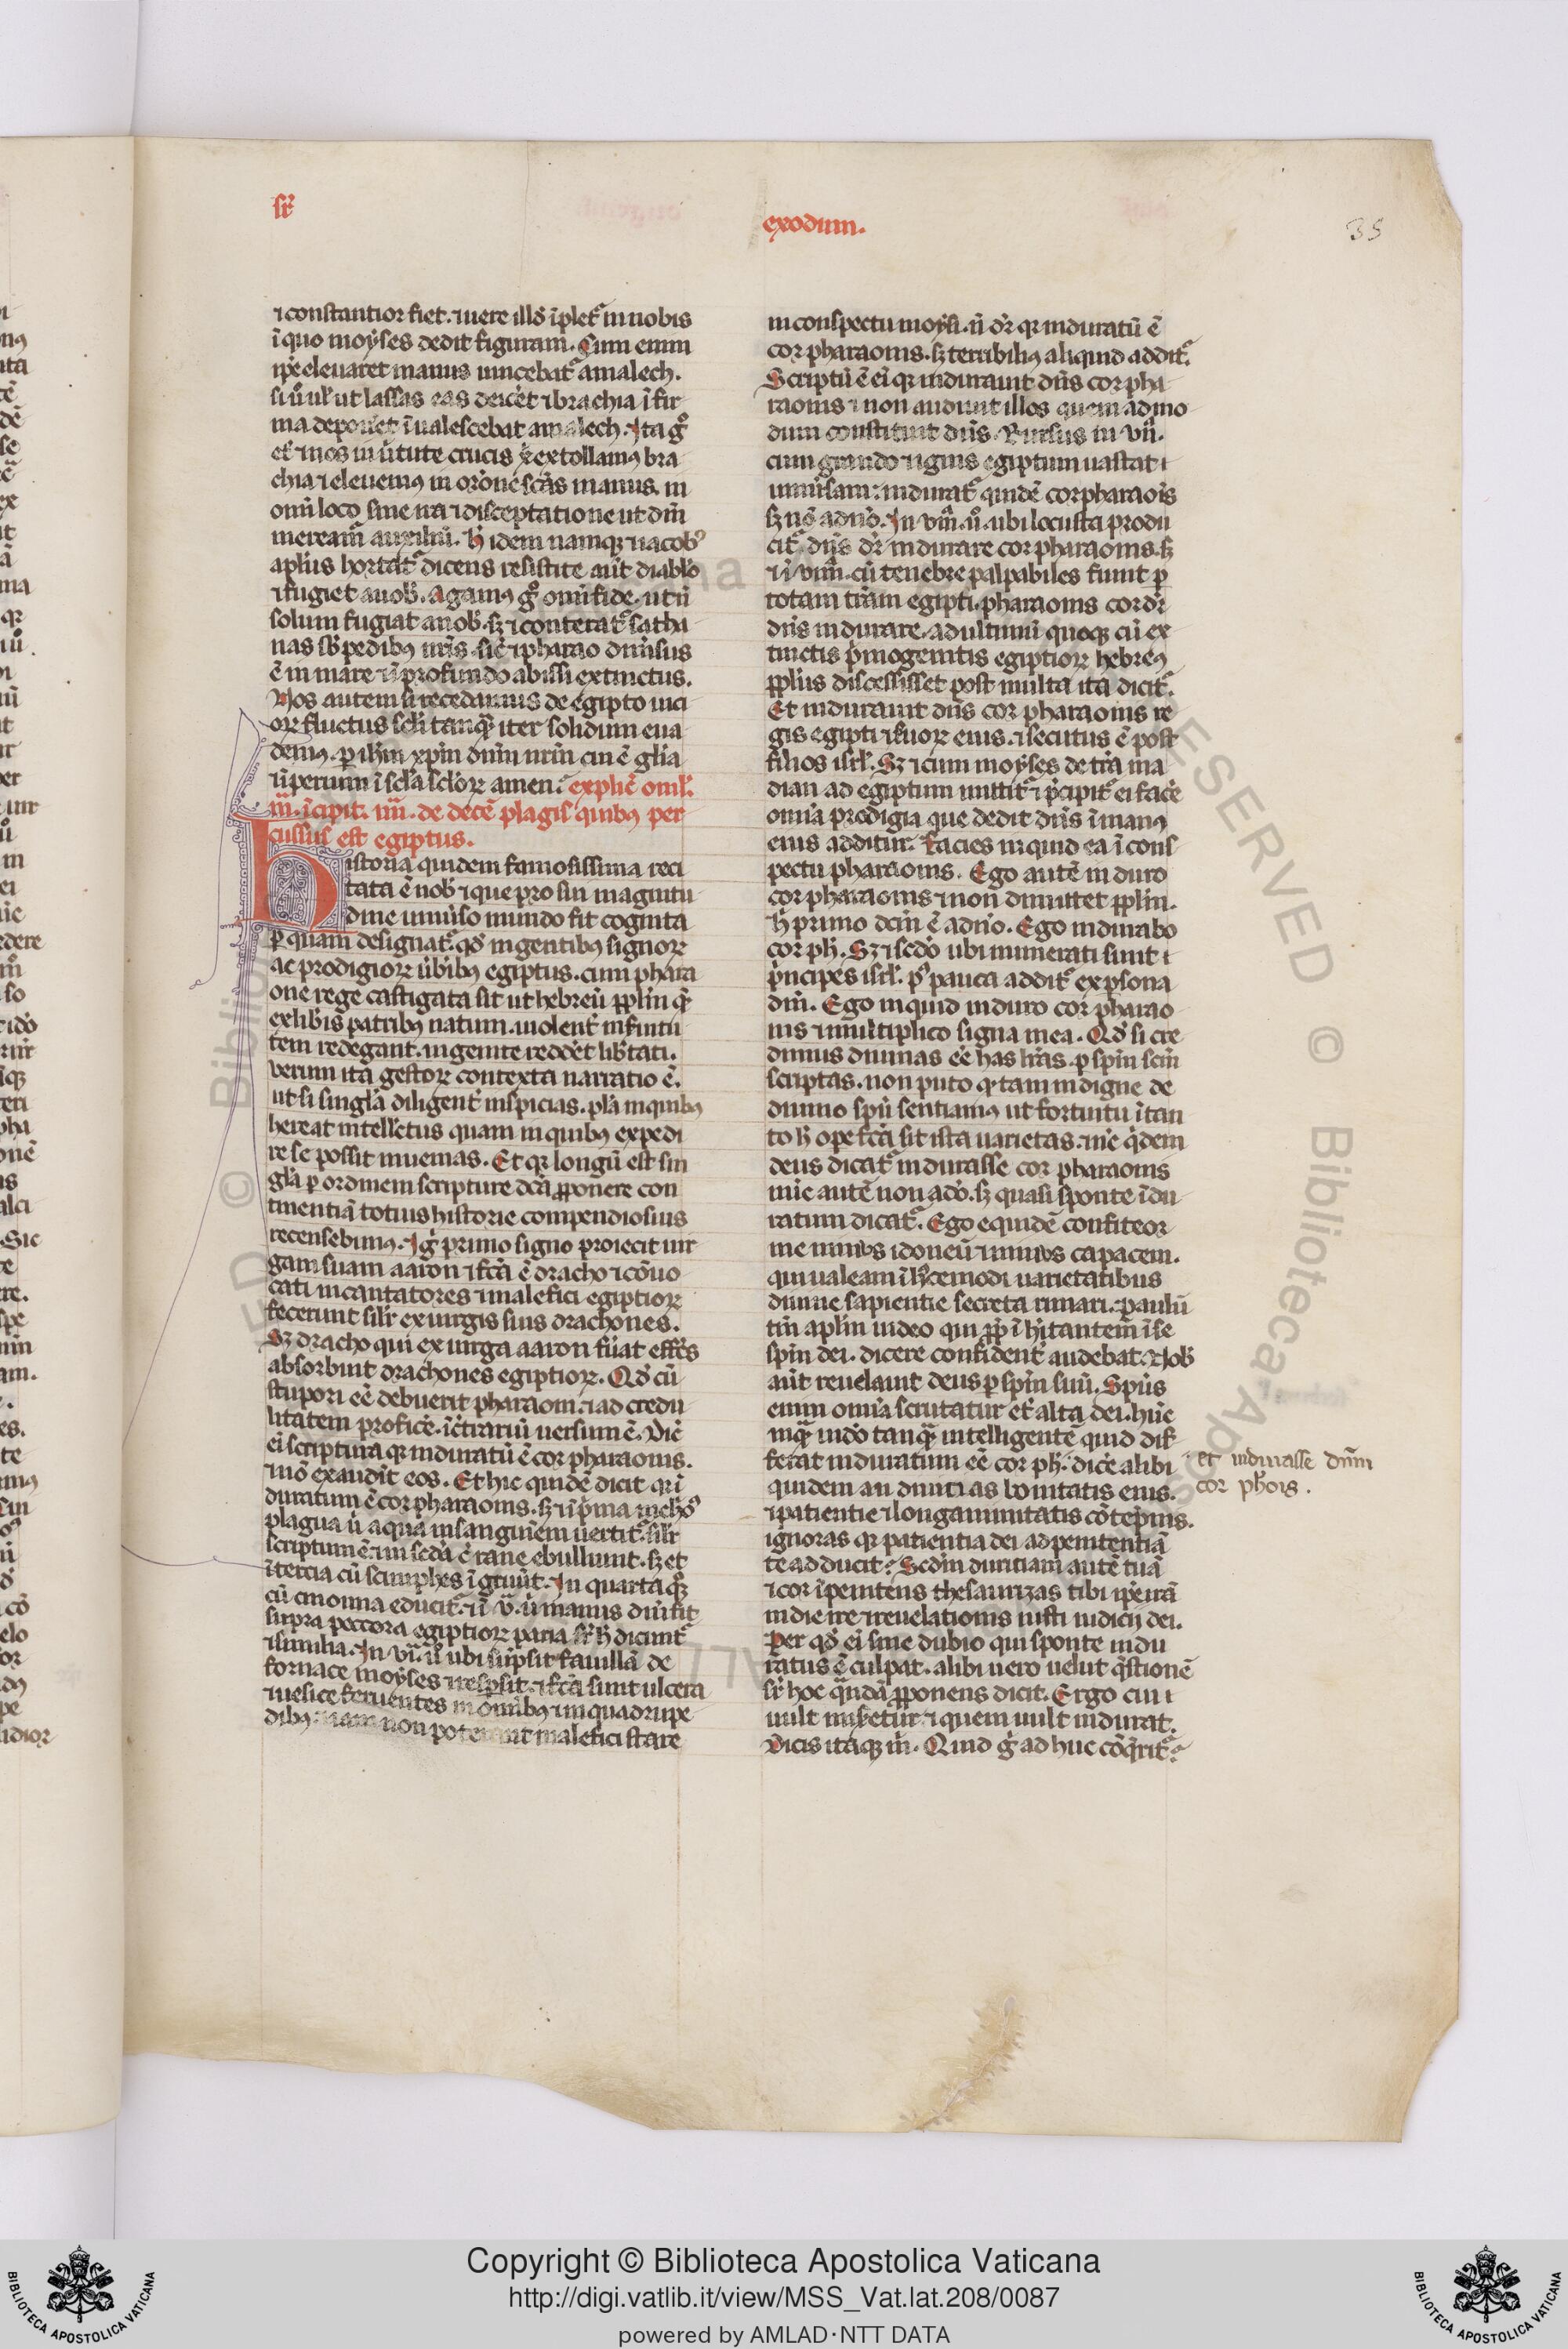 sr̄
exodum.
35
⁊ constantior fiet. ⁊ uere illđ īpletͬ in nobis
ī quo moyses dedit figuram. Cum enim
ip̄e eleuaret manus uincebatͬ amalech.
si ū ul̓ ut lassas eas deicet ⁊ brachia ī fir
ma deponet īualescebat amalech. Ita gͦ
et ⁊ nos in ūtute crucis x̄ extollamꝰ bra
chia ⁊ eleuemꝰ in orōne sc̄as manus. in
om̄i loco sine ira ⁊ disceptatione ut dn̄i
meream̄ auxiliū. h̓ idem namqꝫ ⁊ iacobꝰ
apl̄us hortatͬ dicens resistite aūt diabl̓o
⁊ fugiet a uob̓. Agamꝰ gͦ om̄i fide. ut n̄
solum fugiat a nob̓. sꝫ ⁊ conteratͬ satha
nas sb̓ pedibꝰ nr̄is. sic̄ ⁊ pharao dim̄sus
ē in mare ⁊ ī profundo abissi extinctus.
Nos autem si recedamus de egipto uici
oꝝ fluctus scl̓i tanqͣ iter solidum eua
demꝰ. ꝑ ih̄m xp̄m dn̄m nr̄m cui ē gl̄ia
⁊ īperium ī scl̓a scl̓oꝝ amen. explic̄ omł.
iii. īcipit. iiii. de decē plagis quibꝰ per
cussus est egiptus.
Historia quidem famosissima reci
tata ē nob̓ ⁊ que pro sui magnitu
dine uniūso mundo fit cognita
ꝑ quam designatͬ. qđ ingentibꝰ signoꝝ
ac prodigioꝝ ūb̓ibꝰ egiptus. cum phara
one rege castigata sit ut hebreū ppl̄m qͣ
ex lib̓is patribꝰ natum. uiolent̓ in fuitu
tem redegant. ingenite reddet lib̓tati.
Verum ita gestoꝝ contexta narratio ē.
ut si singl̓a diligent̓ inspicias. pl̓a in quibꝰ
hereat intell̓ctus quam in quibꝰ expedi
re se possit inuenias. Et qꝛ longū est sin
gl̓a ꝑ ordinem scripture dc̄a ꝓponere con
tinentiā totius historie compendiosius
recensebimꝰ. Ig̓ primo signo proiecit uir
gam suam aaron ⁊ fc̄a ē dracho ⁊ cōuo
cati incantatores ⁊ malefici egiptioꝝ
fecerunt sil̓r ex uirgis suis drachones.
Sꝫ dracho qui ex uirga aaron fūat eff̄cs
absorbuit drachones egiptioꝝ. Qđ cū
stupori eē debuerit pharaoni. ⁊ ad credu
litatem profic̄e. ī ōtrariū uersum ē. Dic̄
ei scriptura qꝛ induratū ē cor pharaonis.
⁊ nō exaudit eos. Et hic quidē dicit qꝛ ī
duratum ē cor pharaonis. sꝫ ⁊ ī p̓ma nichōꝰ
plagua ū aqua in sanguinem uertitͬ. sil̓r
scriptum ē. in sc̄da ē rane ebulliunt. sꝫ et
ī tercia cū sciniphes ī gr̄uūt. In quarta qͦꝫ
cū cinomia educitͬ. ⁊ ī v̄. ū manus diu̓i fit
supra peccora egiptioꝝ paria sr̄ h̓ dicuntͬ
⁊ similia. In vī. ū ubi sūpsit fauillā de
fornace moyses ⁊ resꝑsit. ⁊ fc̄a sunt ulcera
⁊ uesice feruentes in om̄ibꝰ ⁊ in quadrupe
dibꝰ. ⁊ iam non poterant malefici stare
in conspectu moysi. n̄ dr̄ qꝛ induratū ē
cor pharaonis. sꝫ terribiliꝰ aliquid additͬ.
Scriptū ē ei qꝛ indurauit dn̄s cor pha
raonis ⁊ non audiuit illos quem ad mo
dum constituit dn̄s. Rursus in vii̅.
cum grando ⁊ ignis egiptum uastat ⁊
uniūsam: induratͬ quidē cor pharaoīs
sꝫ nō ad nō. In viii̅. ū. ubi locusta produ
citͬ dn̄s dr̄ indurare cor pharaonis. sꝫ
⁊ ī viiii̅. cū tenebre palpabiles fiunt ꝑ
totam tr̄am egipti. pharaonis cor dr̄
dn̄s indurare. ad ultimū quoqꝫ cū ex
tinctis p̓mogenitis egiptioꝝ hebreꝰ
ppl̄us discessisset post multa ita dicitͬ.
Et indurauit dn̄s cor pharaonis re
gis egipti ⁊ suoꝝ eius. ⁊ secutus ē post
filios isrl̓. Sꝫ ⁊ cum moyses de tr̄a ma
dian ad egiptum mittitͬ ⁊ p̓cipitͬ ei facē
om̄ia prodigia que dedit dn̄s ī manꝰ
eius additur. facies inquid ea ī cons
pectu pharaonis. Ego autē induro
cor pharaonis ⁊ non dimittet ppl̄m.
h̓ primo dc̄m ē a dn̄o. Ego indurabo
cor ph̓. Sꝫ ⁊ sc̄do ubi numerati sunt ⁊
p̓ncipes isrl̓. pꝰ pauca additͬ ex psona
dn̄i. Ego inquid induro cor pharao
nis ⁊ multiplico signa mea. Qđ si cre
dimus diuinas eē has lr̄as. ꝑ sp̄m sc̄m
scriptas. non puto qͩ tam indigne de
diuino sp̄u sentiamꝰ ut fortuitu ī tan
to h̓ ope fc̄a sit ista uarietas. nc̄ qͥdem
deus dicatͬ indurasse cor pharaonis
nc̄ autē non a dō. sꝫ quasi sponte īdu
ratum dicatͬ. Ego equidē confiteor
me minꝰs idoneū ⁊ minꝰs capacem.
qui ualeam ī h̓ycemodi uarietatibus
diuine sapientie secreta rimari. paulū
tn̄ apl̄m uideo qui ꝓpͭ ī h̓itantem ī se
sp̄m dei. dicere confident̓ audebat. Nob̓
aūt reuelauit deus ꝑ sp̄m suū. Sp̄us
enim om̄ia scrutatur et alta dei. hūc
inqͣ uidō tanqͣ intelligentē quid dif
ferat induratum eē cor ph̓. dicē alibi
quidem an diuitias bonitatis eius.
⁊ patientie ⁊ longanimitatis cōtēpnis.
ignoras qꝛ patientia dei ad penitentiā
te adducit? Scd̄m duritiam autē tuā
⁊ cor īpenitens thesaurizas tibi ip̄i irā
in die ire ⁊ reuelationis iusti iudicij dei.
Per qđ ei sine dubio qui sponte indu
ratus ē culpat. alibi uero uelut q̄stionē
sr̄ hoc qͣndā ꝓponens dicit. Ergo cui ⁊
uult miseretur ⁊ quem uult indurat.
Dicis itaqꝫ m̓. Quid g̓ ad huc cōq̄ritͬ?
et indurasse dn̄m
cor ph̓ois.
Copyright © Biblioteca Apostolica Vaticana
http://digi.vatlib.it/view/MSS_Vat.lat.208/0087
powered by AMLAD·NTT DATA